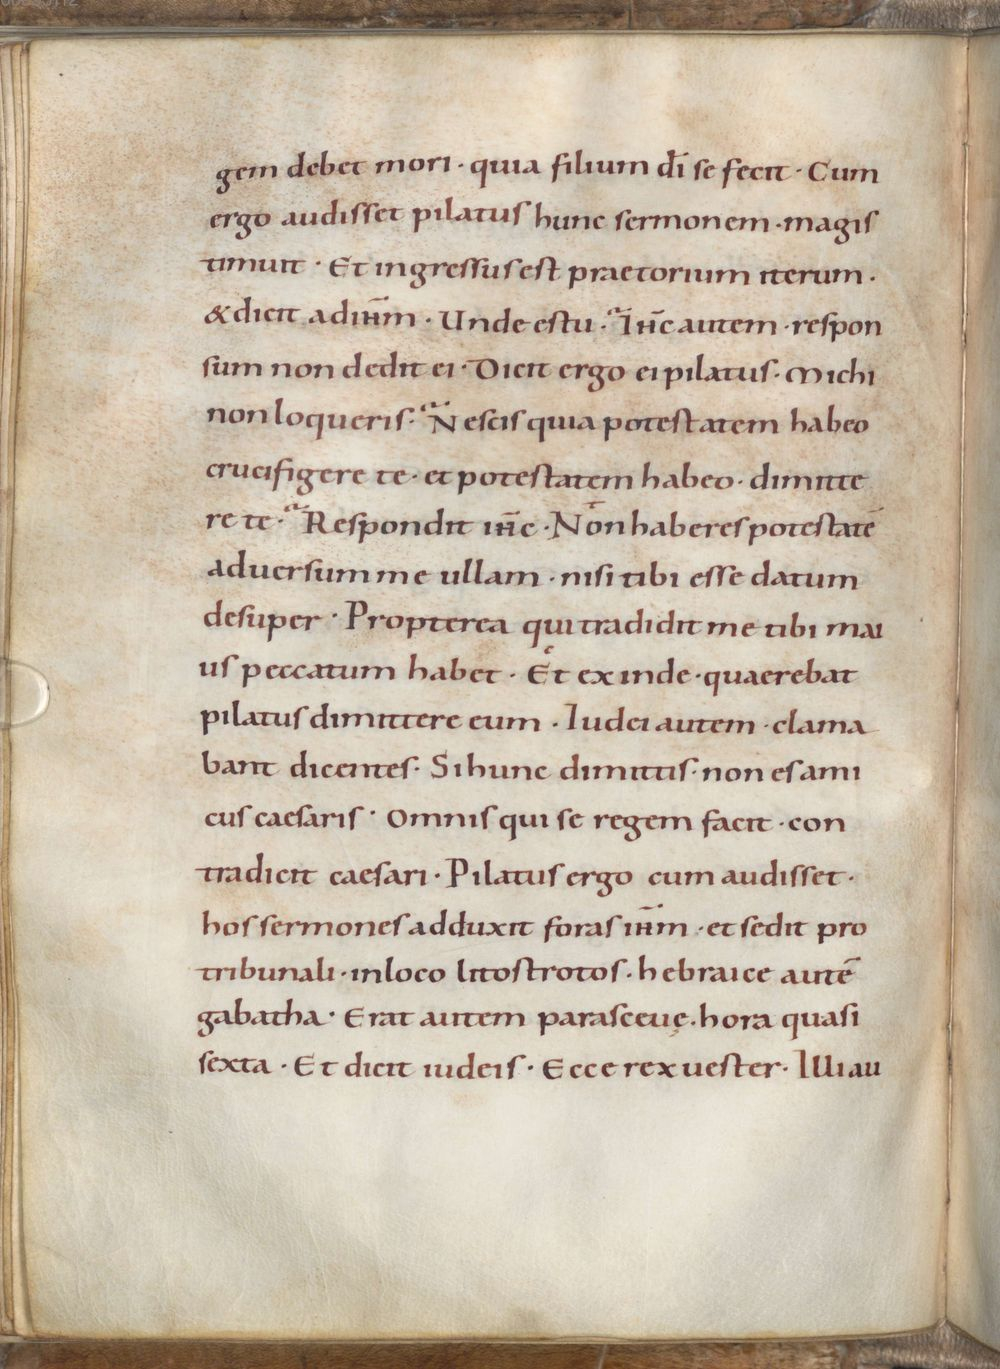 gem debet mori · quia filium dī se fecit · Cum
ergo audisset pilatus hunc sermonem · magis
timuit · Et ingressus est praetorium iterum ·
& dicit ad iħm̄ · Unde es tu · Iħc̄ autem · respon
sum non dedit ei · Dicit ergo ei pilatus · Michi
non loqueris · Nescis quia potestatem habeo
crucifigere te · et potestatem habeo · dimitte
re te · Respondit iħc̄ · Non haberes potestatē
adversum me ullam · nisi tibi esse datum
desuper · Propterea qui tradidit me tibi mai
us peccatum habet · Et exinde · quaerebat
pilatus dimittere eum · Iudei autem · clama
bant dicentes · Si hunc dimittis · non es ami
cus caesaris · Omnis qui se regem facit · con
tradicit caesari · Pilatus ergo cum audisset ·
hos sermones adduxit foras iħm̄ · et sedit pro
tribunali · in loco litostrotos · hebraice autē
gabatha · Erat autem parasceuę · hora quasi
sexta · Et dicit iudeis · Ecce rex uester · Illi au